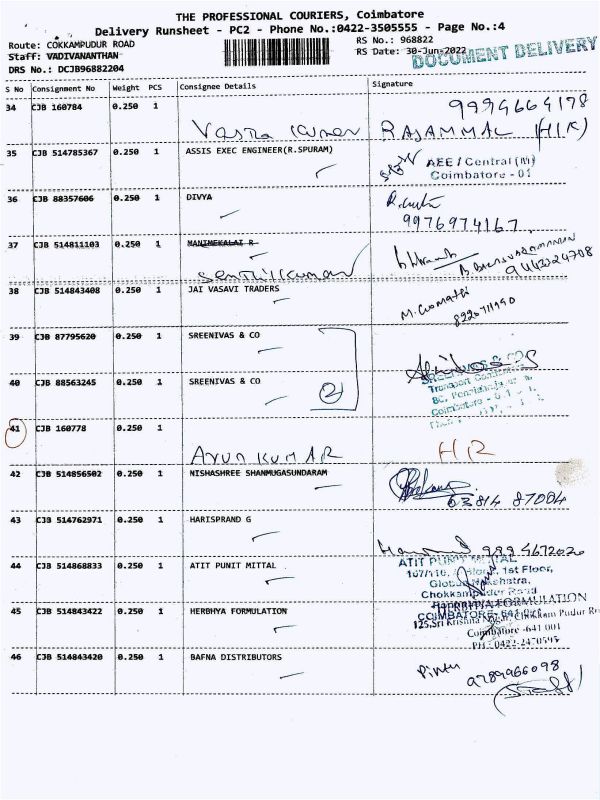 THE PROFESSIONAL COURIERS, Coimbatore
Delivery Runsheet - PC2 - Phone No.:0422-3505555 - Page No.:4
Route: COKKAMPUDUR ROAD RS No.: 968822
Staff: VADIVANANTHAN RS Date: 30-Jun-2022
DRS No.: DCJB96882204 DOCUMENT DELIVERY
S No Consignment No Weight PCS Consignee Details Signature
34 CJB 160784 0.250 1 9994664178
Vasna Kumar RAJAMMAL (H/R)
35 CJB 514785367 0.250 1 ASSIS EXEC ENGINEER(R.SPURAM)
AEE / Central (M)
Coimbatore - 01
36 CJB 88357606 0.250 1 DIVYA
9976974167
37 CJB 514811103 0.250 1 MANIMEKALAI R
Senthilkumar
38 CJB 514843408 0.250 1 JAI VASAVI TRADERS
M. Gomathi
8220711990
39 CJB 87795620 0.250 1 SREENIVAS & CO
40 CJB 88563245 0.250 1 SREENIVAS & CO 2
SREENIVAS & CO
41 CJB 160778 0.250 1
Arun KUMAR HR
42 CJB 514856502 0.250 1 NISHASHREE SHANMUGASUNDARAM
63814 87084
43 CJB 514762971 0.250 1 HARISPRAND G
44 CJB 514868833 0.250 1 ATIT PUNIT MITTAL
ATIT PUNIT MITTAL
1st Floor,
Chokkampuder Road
COIMBATORE- 641
45 CJB 514843422 0.250 1 HERBHYA FORMULATION
HERBHYA FORMULATION
125,Sri Krishna Nagar, Chokkam Pudur Ro
Coimbatore -641 001
PH : 0422-2470595
46 CJB 514843420 0.250 1 BAFNA DISTRIBUTORS
Pintu 9789966098
(Staff)